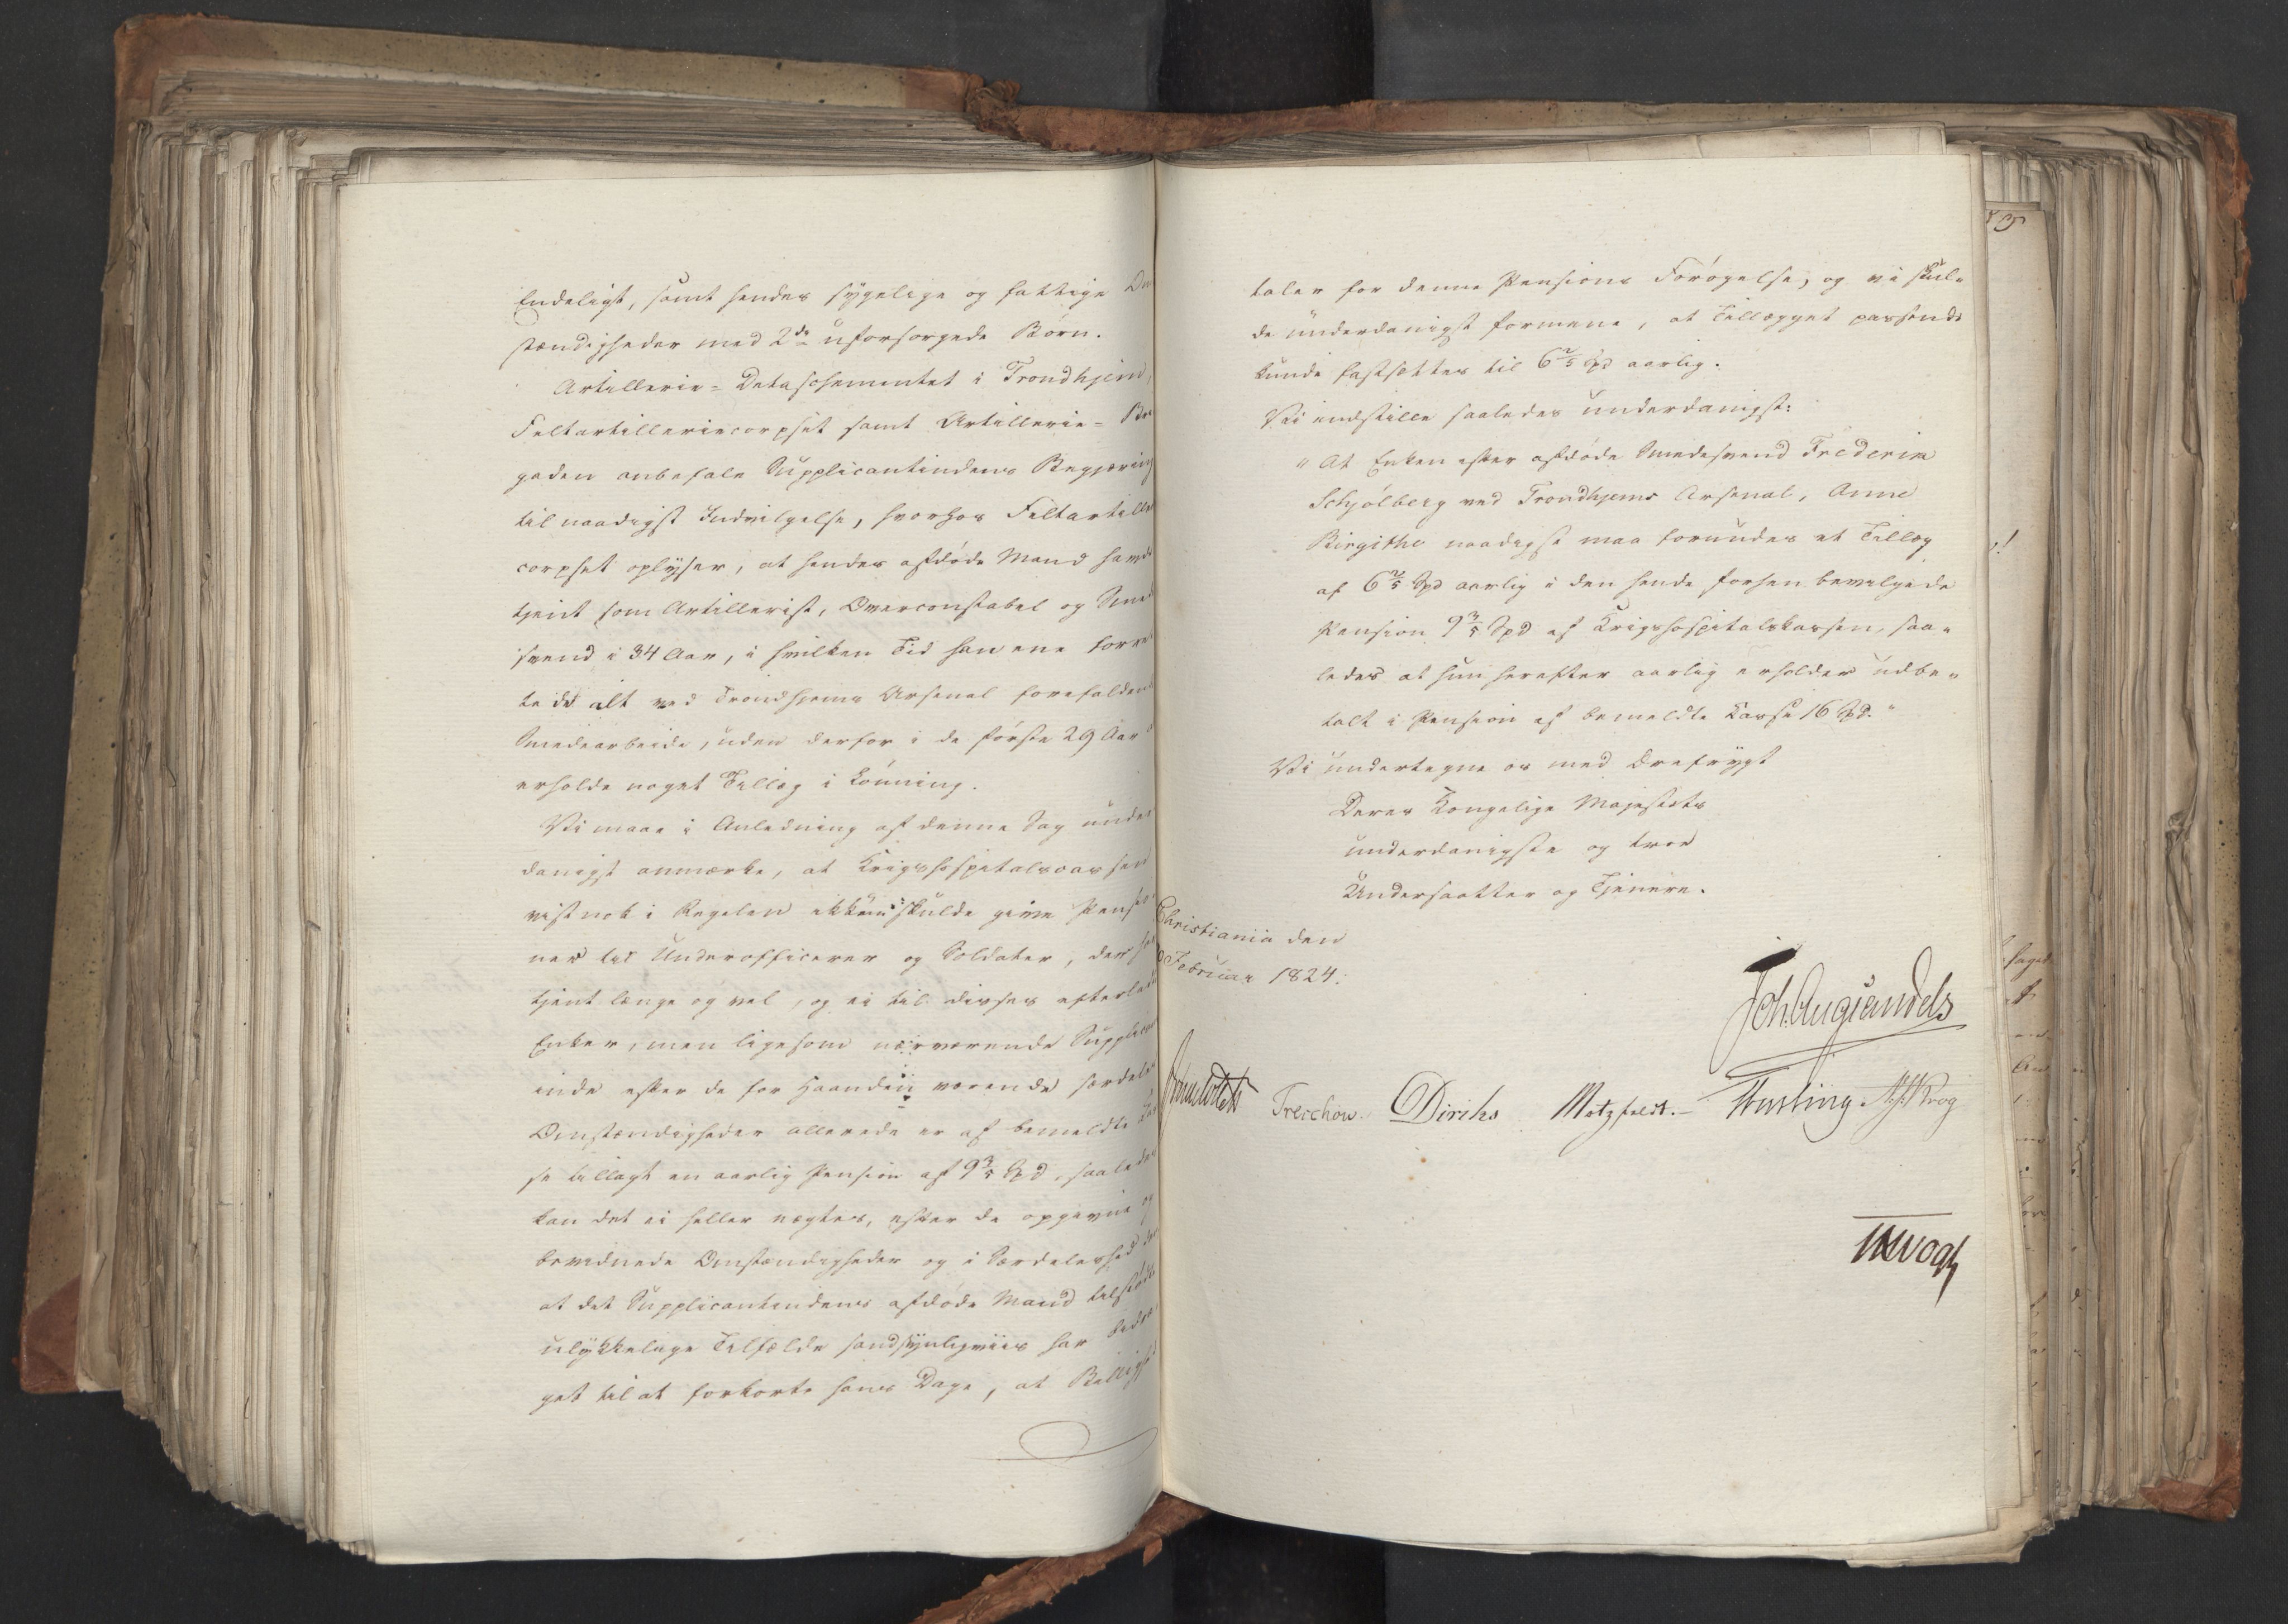 Endeligt, samt hendes sygelige og fattige Om
stændigheder med 2de uforsørgede Börn.
Artillerie-Detaschementet i Trondhjem,
Feltartilleriecorpset samt Artillerie-Bri
gaden anbefale Supplicantindens Begjæring
til naadigst Indvilgelse, hvorhos Feltartille
corpset oplyser, at hendes afdöde Mand havde
tjent som Artillerist, Overconstabel og Smed
svend i 34 Aar, i hvilken Tid han ene forret
tede alt ved Trondhjems Arsenal forefaldende
Smedearbeide, uden derfor i de förste 29 Aar
erholde noget Tillæg i Lönning.
Vi maae i Anledning af denne Sag under
danigst anmærke, at Krigshospitalscassen
vistnok i Regelen ikkun skulde give Pensio
ner til Underofficerer og Soldater, der har
tjent længe og vel, og ei til disses efterladte
Enker, men ligesom nærværende Supplicant
inde efter de for Haanden værende særdeles
Omstændigheder allerede er af bemeldte Cas
se tillagt en aarlig Pension af 9 3/5 Spd, saaledes
kan det ei heller nægtes, efter de opgivne og
bevidnede Omstændigheder og i Særdeleshed der
at det Supplicantindens afdöde Mand tilstödte
ulykkelige Tilfælde sandsynligviis har bidra
get til at forkorte hans Dage, at Billighed
taler for denne Pensions Forögelse, og vi skul-
de underdanigst formene, at Tillægget passende
kunde fastsættes til 6 2/5 Spd aarlig.
Vi indstille saaledes underdanigst:
"At Enken efter afdöde Smedesvend Frederik
Schjölberg ved Trondhjems Arsenal, Anne
Birgithe naadigst maa forundes et Tillæg
af 6 2/5 Spd aarlig i den hende forhen bevilgede
Pension 9 3/5 Spd af Krigshospitalskassen, saa-
ledes at hun herefter aarlig erholder udbe-
talt i Pension af bemeldte Casse 16 Spd."
Vi undertegne os med Ærefrygt
Deres Kongelige Majestæts
underdanigste og troe
Undersaatter og Tjenere.
Christiania den
Februar 1824.
Joh. Aug. Sandels
Treschow. Diriks Motzfeldt. Fasting Krog
Vogt